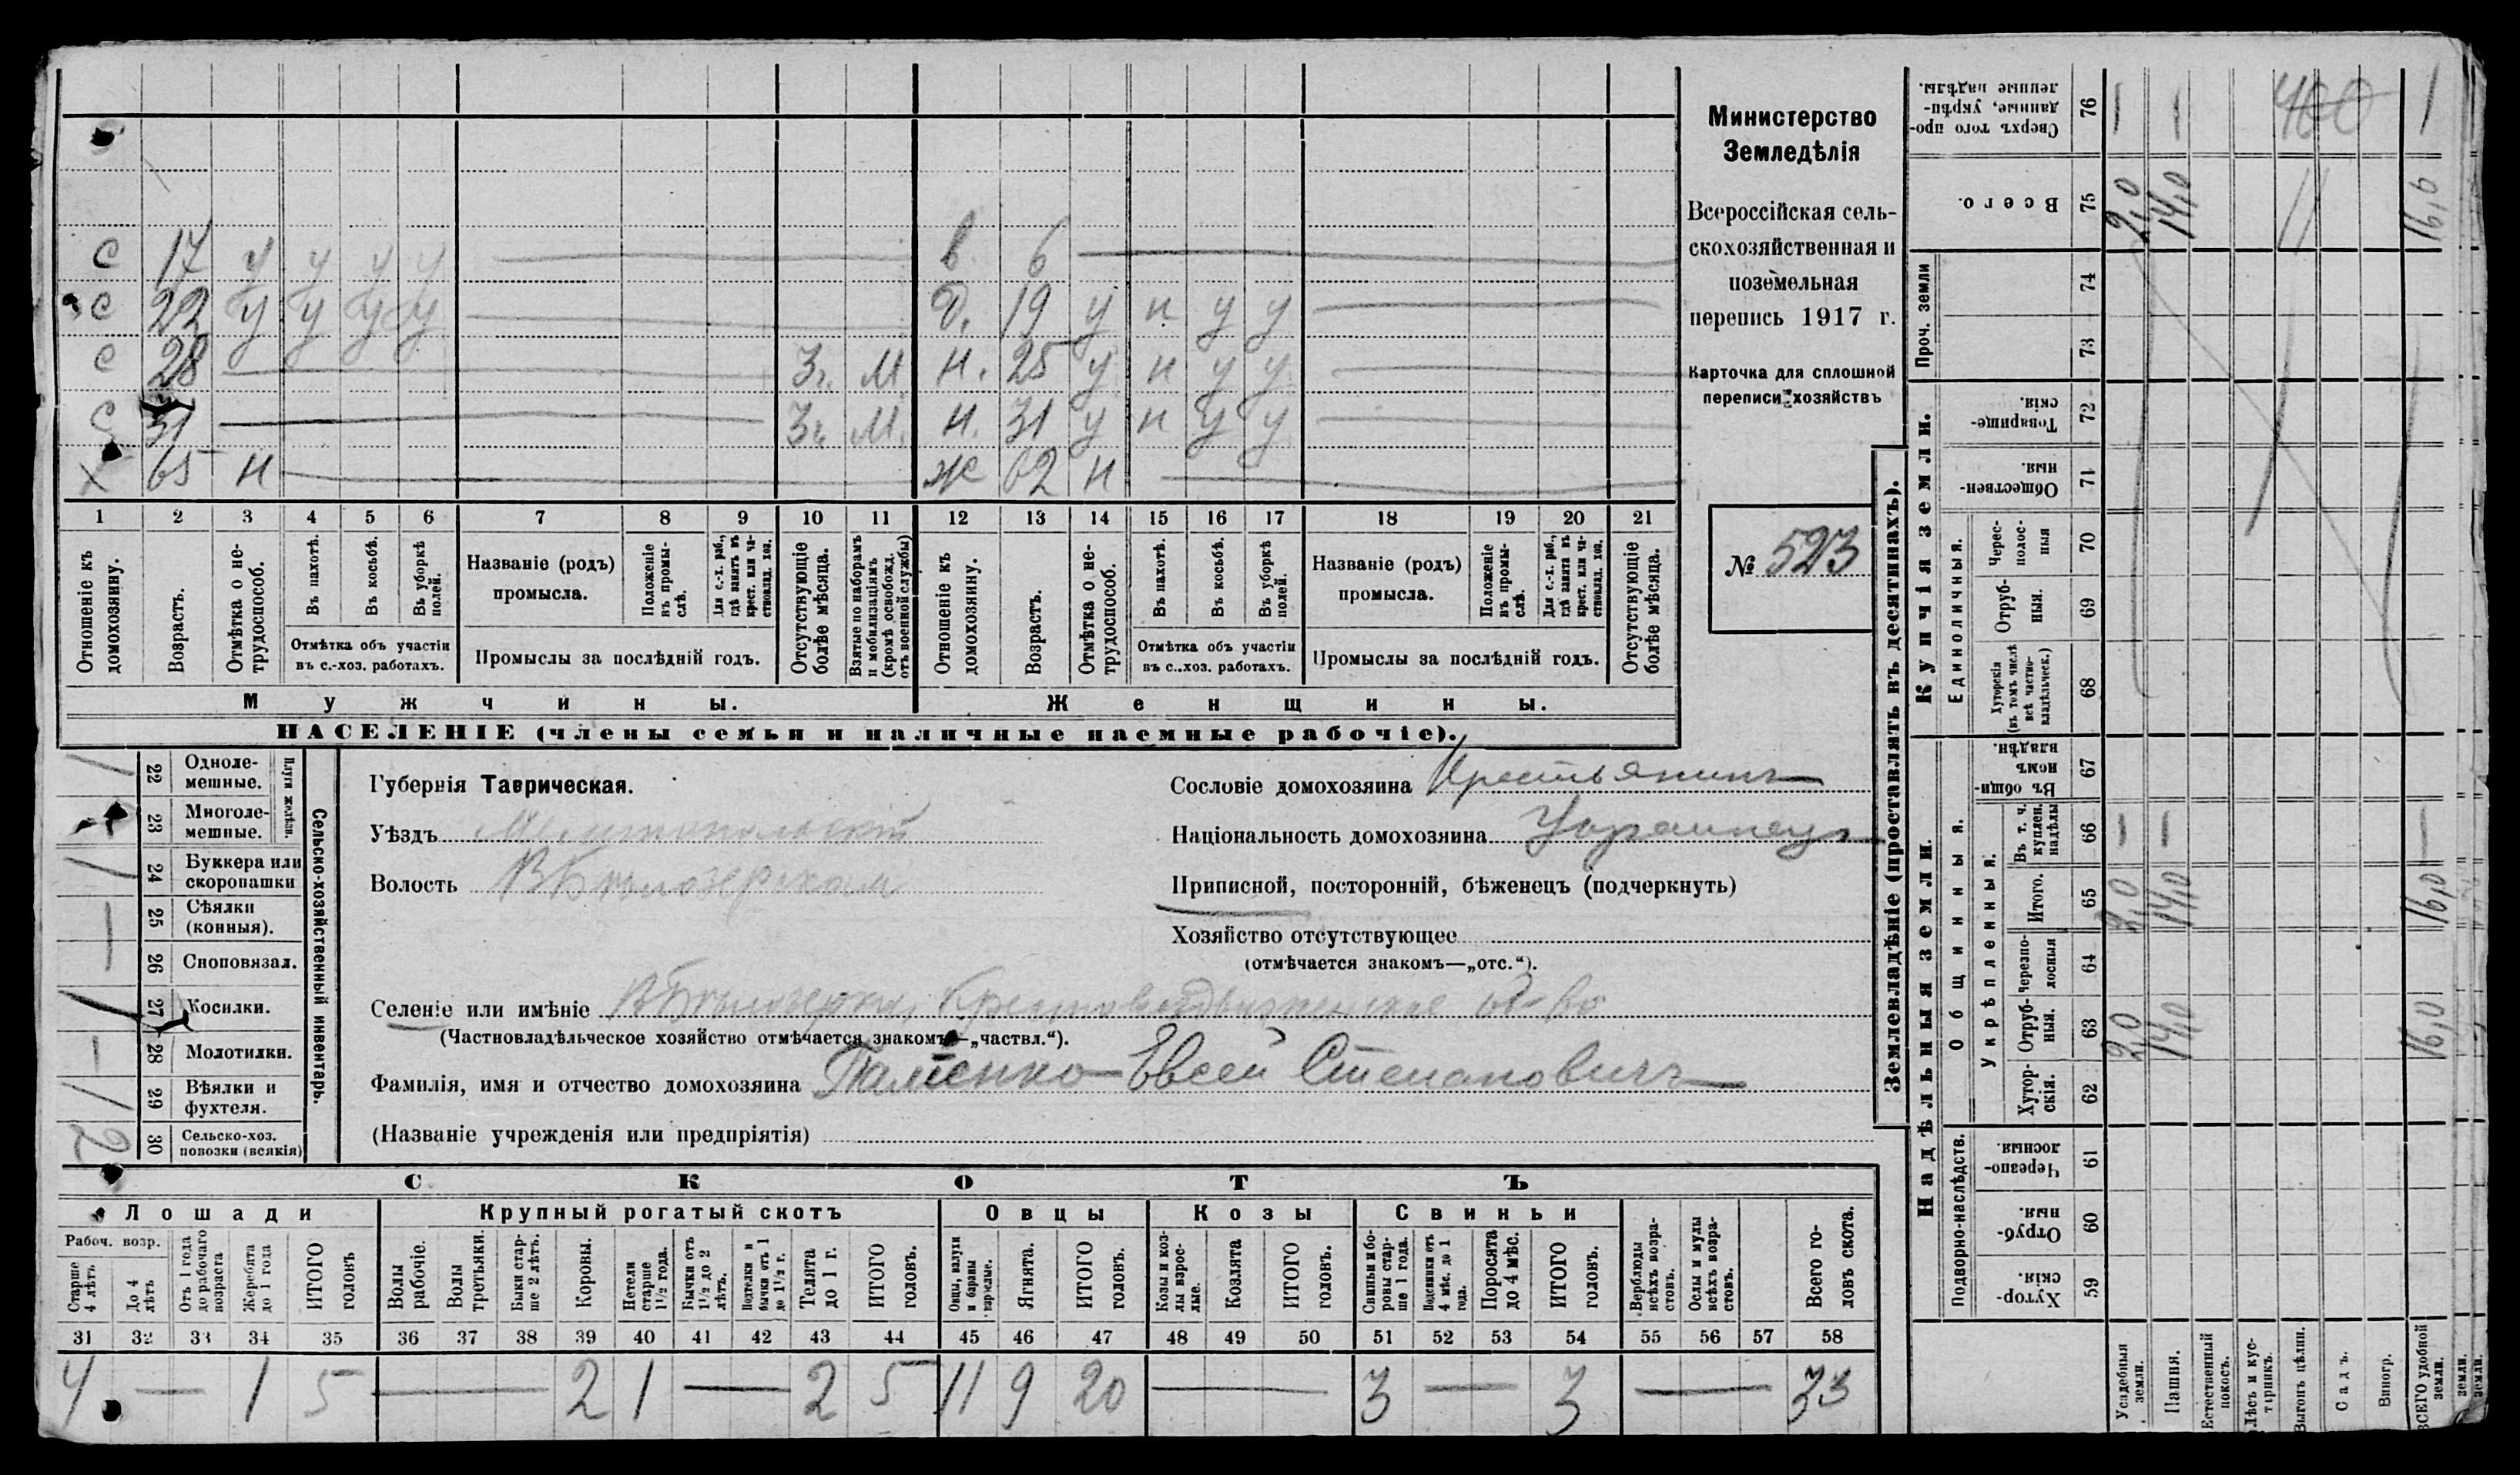 с 17 у у у у — в 6 —
с 22 у у у у — д. 19 у н у у —
с 28 — Зг. М н. 25 у н у у —
с 31 — Зг. М. н. 31 у н у у —
х 65 н — ж 62 н —
1 2 3 4 5 6 7 8 9 10 11 12 13 14 15 16 17 18 19 20 21
Отношеніе къ домохозяину.
Возрастъ.
Отмѣтка о не-трудоспособ.
Въ пахотѣ.
Въ косьбѣ.
Въ уборкѣ полей.
Отмѣтка объ участіи въ с.-хоз. работахъ.
Названіе (родъ) промысла.
Положеніе въ промы-слѣ.
Для с.-х. раб., гдѣ занятъ въ крест. или ча-стновлад. хоз.
Промыслы за послѣдній годъ.
Отсутствующіе болѣе мѣсяца.
Взятые по наборамъ и мобилизаціямъ (кромѣ освобожд. отъ военной службы)
Отношеніе къ домохозяину.
Возрастъ.
Отмѣтка о не-трудоспособ.
Въ пахотѣ.
Въ косьбѣ.
Въ уборкѣ полей.
Отмѣтка объ участіи въ с.-хоз. работахъ.
Названіе (родъ) промысла.
Положеніе въ промы-слѣ.
Для с.-х. раб., гдѣ занята въ крест. или ча-стновлад. хоз.
Промыслы за послѣдній годъ.
Отсутствующіе болѣе мѣсяца.
Мужчины. Женщины.
НАСЕЛЕНІЕ (члены семьи и наличные наемные рабочіе).
Министерство
Земледѣлія
Всероссійская сель-
скохозяйственная и
поземельная
перепись 1917 г.
Карточка для сплошной
переписи хозяйствъ
№ 523
Сельско-хозяйственный инвентарь.
Плуги желѣзн.
22 Одноле-мешные. 1
23 Многоле-мешные.
24 Буккера или скоропашки 1
25 Сѣялки (конныя). —
26 Сноповязал. —
27 Косилки. 1
28 Молотилки. —
29 Вѣялки и фухтеля. 1
30 Сельско-хоз. повозки (всякія) 2
Губернія Таврическая.
Уѣздъ Мелитопольскій
Волость В Бѣлозерская
Селеніе или имѣніе В Бѣлозерка, Крестовоздвиженское о-во
(Частновладѣльческое хозяйство отмѣчается знакомъ—„частвл.“).
Фамилія, имя и отчество домохозяина Евсей Степановичъ
(Названіе учрежденія или предпріятія)
Сословіе домохозяина Крестьянинъ
Національность домохозяина Украинецъ
Приписной, посторонній, бѣженецъ (подчеркнуть)
Хозяйство отсутствующее
(отмѣчается знакомъ—„отс.“).
СКОТЪ
Лошади Крупный рогатый скотъ Овцы Козы Свиньи
Рабоч. возр.
Старше 4 лѣтъ
До 4 лѣтъ
Отъ 1 года до рабочаго возраста
Жеребята до 1 года
ИТОГО головъ
Волы рабочіе.
Волы третьяки.
Быки стар-ше 2 лѣтъ.
Коровы.
Нетели старше 1½ года.
Бычки отъ 1½ до 2 лѣтъ.
Подтелки и бычки отъ 1 до 1½ г.
Телята до 1 г.
ИТОГО головъ.
Овцы, валухи и бараны взрослые.
Ягнята.
ИТОГО головъ.
Козы и коз-лы взрос-лые.
Козлята
ИТОГО головъ.
Свиньи и бо-ровы стар-ше 1 года.
Подсвинки отъ 4 мѣс. до 1 года.
Поросята до 4 мѣс.
ИТОГО головъ.
Верблюды всѣхъ возра-стовъ.
Ослы и мулы всѣхъ возра-стовъ.
Всего го-ловъ скота.
31 32 33 34 35 36 37 38 39 40 41 42 43 44 45 46 47 48 49 50 51 52 53 54 55 56 57 58
4 — 1 5 — 2 1 — 2 5 11 9 20 — 3 — 3 — 33
Землевладѣніе (проставлять въ десятинахъ).
Купчія земли.
Надѣльныя земли.
Проч. земли
Единоличныя.
Общинныя.
Укрѣпленныя.
Подворно-наслѣдств.
76 Сверхъ того про-данные, укрѣп-ленные надѣлы.
75 Всего. 2,0 14,0 16,0
74
73
72 Товарище-скія.
71 Обществен-ныя.
70 Черес-полос-ныя
69 Отруб-ныя.
68 Хуторскія (въ томъ числѣ всѣ частно-владѣльческ.)
67 Въ общи-номъ владѣн.
66 Въ т. ч. куплен. надѣлы — — —
65 Итого. 2,0 14,0 16,0
64 черезпо-лосныя
63 Отруб-ныя. 2,0 14,0 16,0
62 Хутор-скія.
61 Черезпо-лосныя
60 Отруб-ныя.
59 Хутор-скія.
Усадебныя земли.
Пашня.
Естественный покосъ.
Лѣсъ и кус-тарникъ.
Выгонъ цѣлин.
Садъ.
Виногр.
ВСЕГО удобной земли.
земли.
земли.